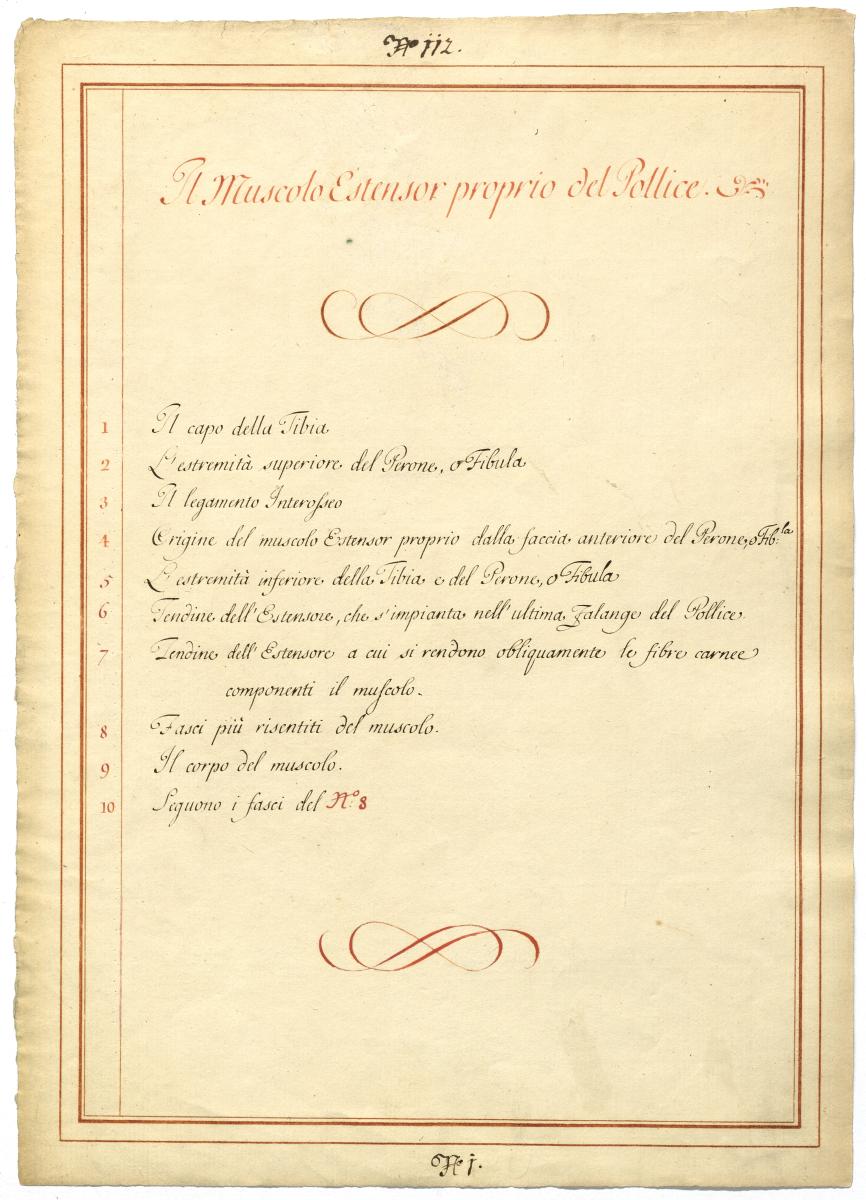 Nº 112.
Il Muscolo Estensor proprio del Pollice.
1 Il capo della Tibia
2 L'estremità superiore del Perone, o Fibula
3 Il legamento Interoſseo
4 Origine del muscolo Estensor proprio dalla faccia anteriore del Perone, o Fib:la
5 L'estremità inferiore della Tibia e del Perone, o Fibula
6 Tendine dell'Estensore, che s'impianta nell'ultima Falange del Pollice.
7 Tendine dell'Estensore a cui si rendono obliquamente le fibre carnee
componenti il muſcolo.
8 Fasci più risentiti del muscolo.
9 Il corpo del muscolo.
10 Seguono i fasci del Nº: 8
Nº 1.